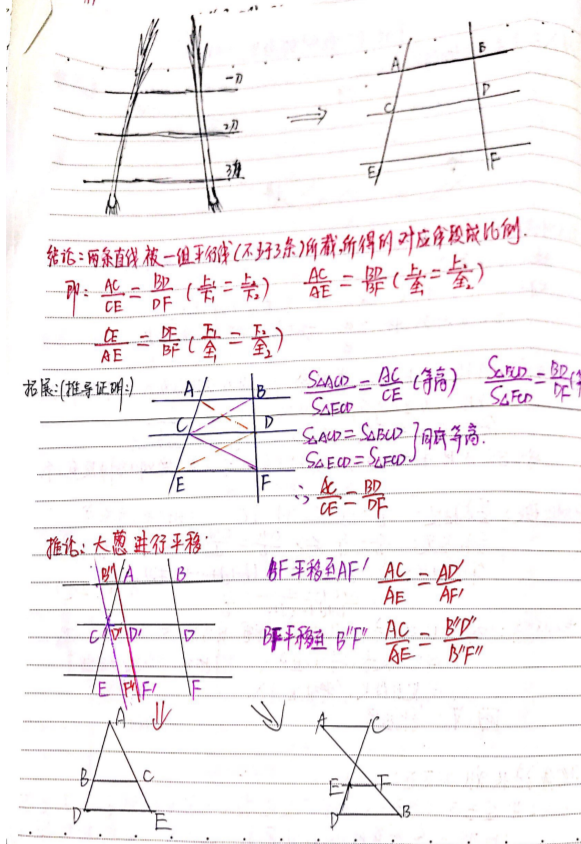 一刀
2刀
3刀
A B
C D
E F
结论:两条直线被一组平行线(不少于3条)所截,所得的对应线段成比例.
即: AC/CE = BD/DF (上1/下1 = 上2/下2) AC/AE = BD/BF (上1/全1 = 上2/全2)
CE/AE = DF/BF (下1/全1 = 下2/全2)
拓展:(推导证明:)
A B
C D
E F
S△ACD/S△ECD = AC/CE (等高) S△BCD/S△FCD = BD/DF
S△ACD = S△BCD
S△ECD = S△FCD } 同底等高.
∴ AC/CE = BD/DF
推论: 大葱进行平移
B" A B
C D" D' D
E F" F' F
BF平移至AF' AC/AE = AD'/AF'
BF平移至 B"F" AC/AE = B"D"/B"F"
A
B C
D E
A C
E F
D B